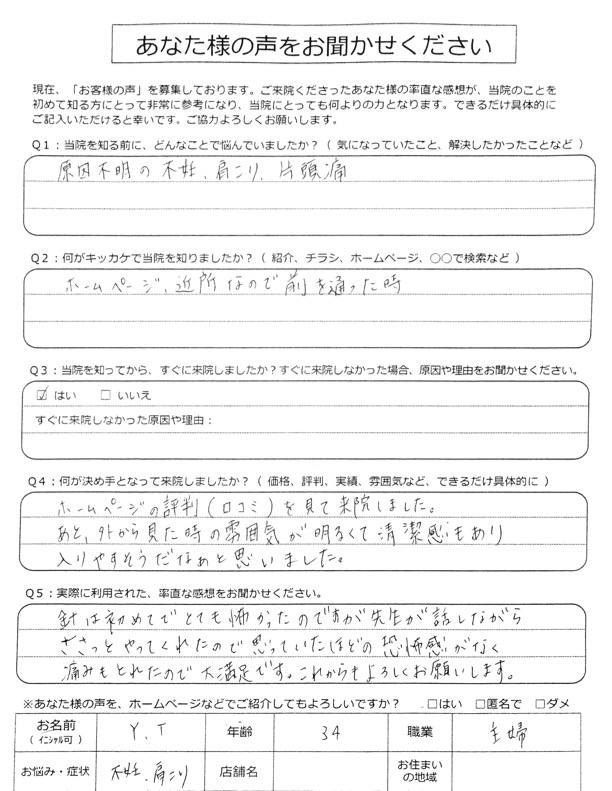 あなた様の声をお聞かせください
現在、「お客様の声」を募集しております。ご来院くださったあなた様の率直な感想が、当院のことを
初めて知る方にとって非常に参考になり、当院にとっても何よりの力となります。できるだけ具体的に
ご記入いただけると幸いです。ご協力よろしくお願いします。
Q1：当院を知る前に、どんなことで悩んでいましたか？（ 気になっていたこと、解決したかったことなど ）
原因不明の不妊、肩こり、片頭痛
Q2：何がキッカケで当院を知りましたか？（ 紹介、チラシ、ホームページ、○○で検索など ）
ホームページ、近所なので前を通った時
Q3：当院を知ってから、すぐに来院しましたか？すぐに来院しなかった場合、原因や理由をお聞かせください。
☑ はい □ いいえ
すぐに来院しなかった原因や理由：
Q4：何が決め手となって来院しましたか？（ 価格、評判、実績、雰囲気など、できるだけ具体的に ）
ホームページの評判（口コミ）を見て来院しました。
あと、外から見た時の雰囲気が明るくて清潔感もあり
入りやすそうだなぁと思いました。
Q5：実際に利用された、率直な感想をお聞かせください。
針は初めてでとても怖かったのですが先生が話しながら
ささっとやってくれたので思っていたほどの恐怖感がなく
痛みもとれたので大満足です。これからもよろしくお願いします。
※あなた様の声を、ホームページなどでご紹介してもよろしいですか？ □はい □匿名で □ダメ
お名前（ｲﾆｼｬﾙ可） Y.T 年齢 34 職業 主婦
お悩み・症状 不妊、肩こり 店舗名 お住まいの地域